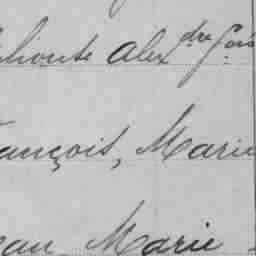 phonse Alex dre Fois
rançois, Marie
ean Marie